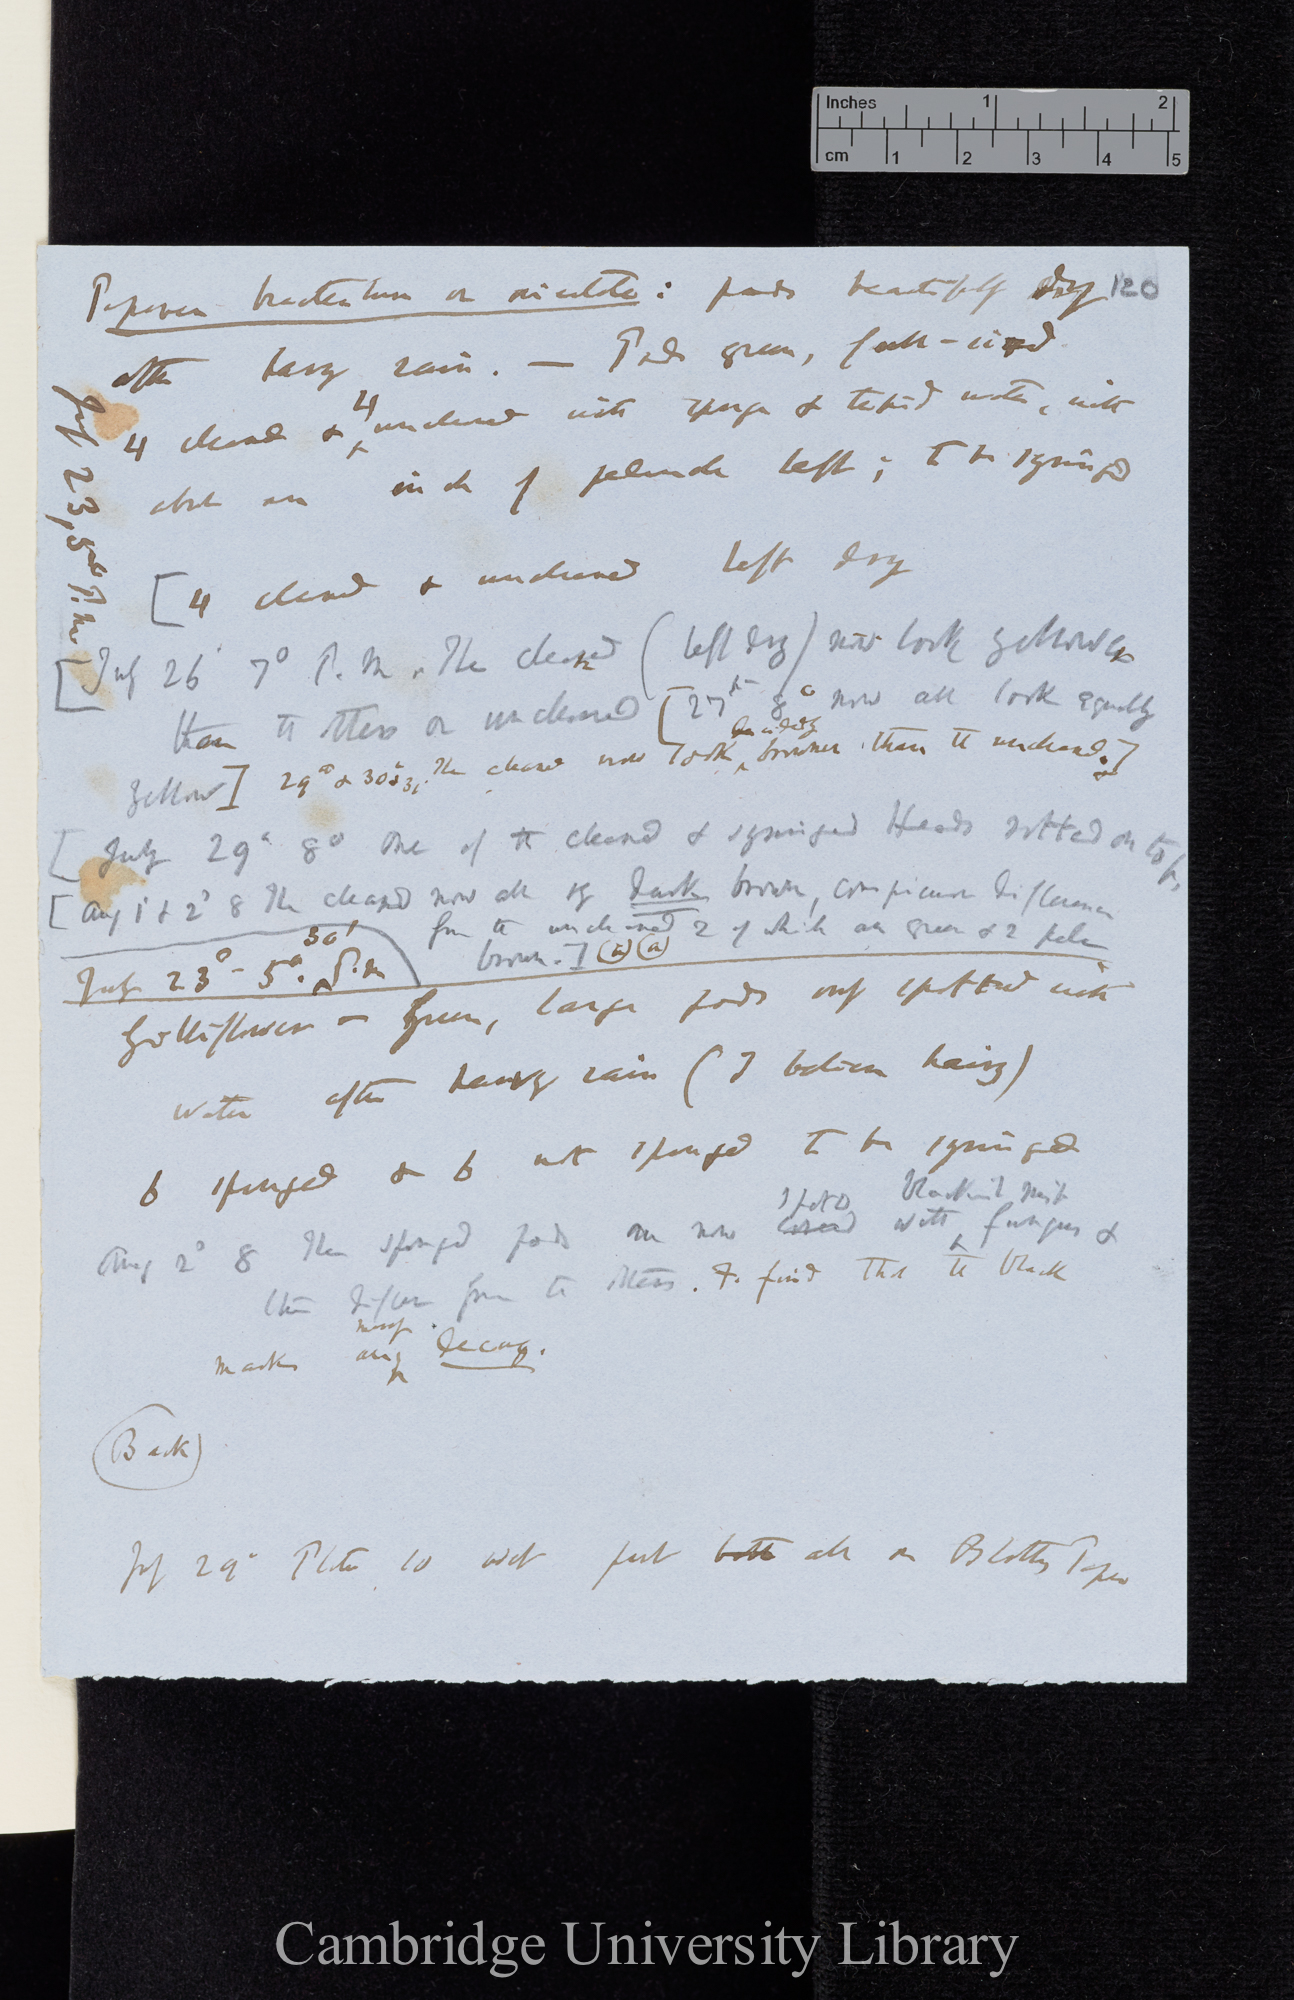 Inches 1 2
cm 1 2 3 4 5
120
Papaver bracteatum or orientale: pods beautifully dry
after heavy rain. — Pods green, full-sized
4 cleaned & 4 uncleaned with sponge & tepid water, with
about an inch of peduncle left; to be syringed
July 23, 5° P.m
[4 cleaned & uncleaned left dry
[July 26° 7° P.m. The cleaned (left dry) now look yellower
than the others or uncleaned [27th 8° now all look equally
yellow] 29° & 30° & 31 The cleaned now look decidedly browner than the uncleaned.]
[July 29° 8° One of the cleaned & syringed Heads rotted on top.
[Aug 1° & 2° 8 The cleaned now all of dark brown, conspicuous difference
from the uncleaned 2 of which are green & 2 pale
brown.] (a) (a)
July 23° - 5°. 30' P.m
Gilliflower — Green, large pods only spotted with
water after heavy rain (I believe hairy)
6 sponged & 6 not sponged to be syringed
Aug 2° 8 The sponged pods are now covered spotted with blackish fungus &
thus differ from the others. I find that the black
marks only decay.
(Back)
July 29° Plates 10 wet put both all on Blotting Paper
Cambridge University Library